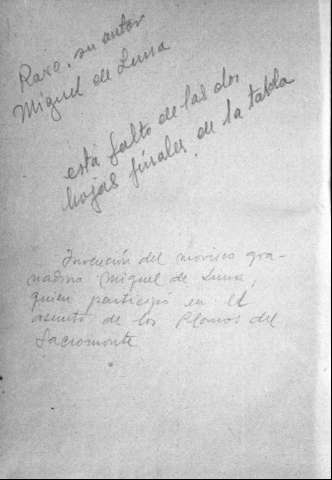 Raro, su autor
Miguel de Luna
está falto de las dos
hojas finales, de la tabla
Invención del morisco gra-
nadino Miguel de Luna,
quien participó en el
asunto de los Plomos del
Sacromonte